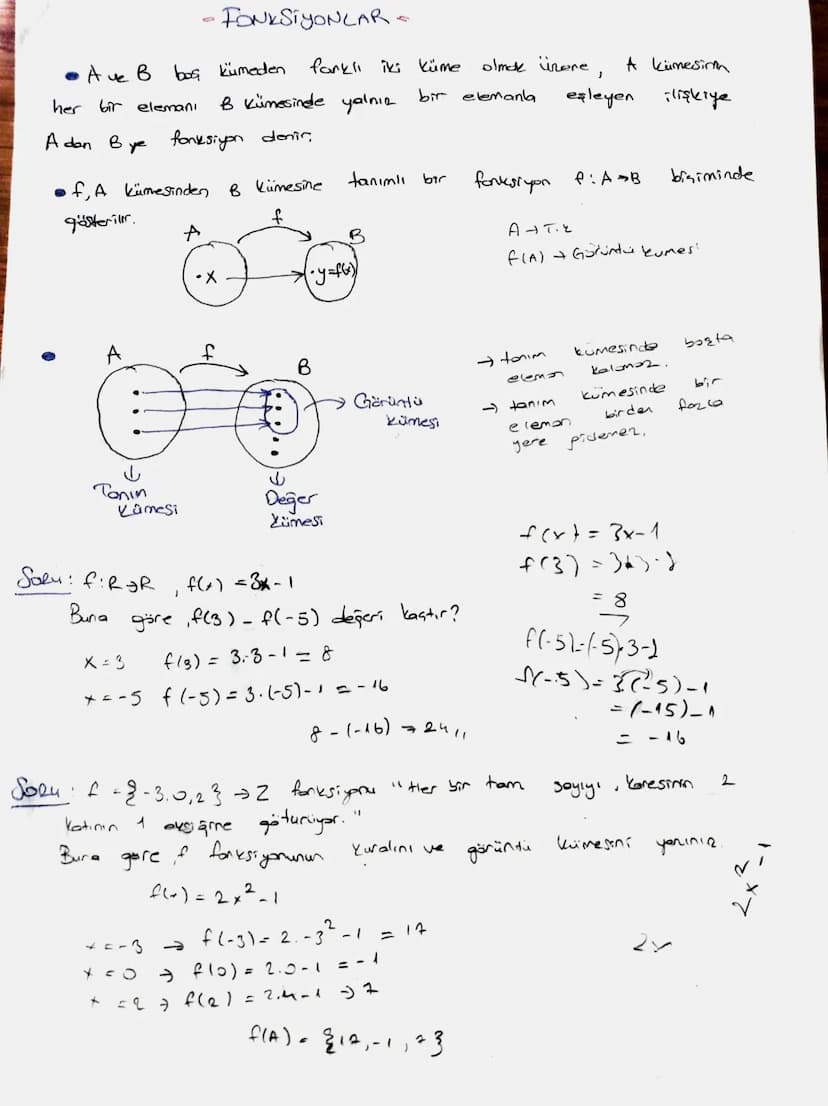 - FONKSİYONLAR -
• A ve B boş kümeden farklı iki küme olmak üzere, A kümesinin
her bir elemanı B kümesinde yalnız bir elemanla eşleyen ilişkiye
A dan B ye fonksiyon denir.
• f, A kümesinden B kümesine tanımlı bir fonksiyon f: A→B biçiminde
gösterilir.
A f B
•x •y=f(x)
A → T.K
f(A) → Görüntü kümesi
A f B
→ Görüntü
kümesi
Tanım
Kümesi
Değer
Kümesi
→ tanım kümesinde boşta
eleman kalamaz.
→ tanım kümesinde bir
eleman birden fazla
yere gidemez.
Soru: f:R→R, f(x) = 3x-1
Buna göre, f(3) - f(-5) değeri kaçtır?
x=3 f(3) = 3.3-1 = 8
x=-5 f(-5) = 3.(-5)-1 = -16
8-(-16) → 24,,
f(x) = 3x-1
f(3) = 3.3-1
= 8
f(-5)=(-5).3-1
f(-5)= 3(-5)-1
= (-15)-1
= -16
Soru: f = {-3,0,2} → Z fonksiyonu "Her bir tam sayıyı, karesinin 2
katının 1 eksiğine götürüyor."
Buna göre, f fonksiyonunun kuralını ve görüntü kümesini yazınız.
f(x) = 2x²-1
x=-3 → f(-3) = 2.-3²-1 = 17
x=0 → f(0) = 2.0-1 = -1
x=2 → f(2) = 2.4-1 → 7
f(A) = {17,-1,7}
2x²-1